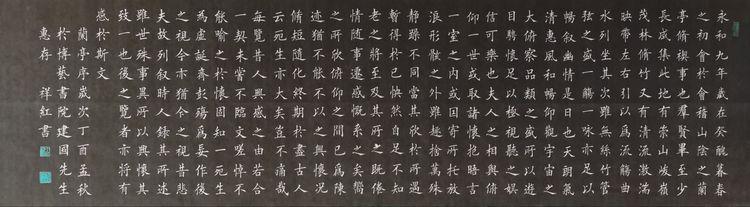 永和九年歲在癸醜暮春
之初會於會稽山陰之蘭
亭脩禊事也羣賢畢至少
長咸集此地有崇山峻嶺
茂林脩竹又有清流激湍
映帶左右引以為流觴曲
水列坐其次雖無絲竹管
弦之盛一觴一詠亦足以
暢敘幽情是日也天朗氣
清惠風和暢仰觀宇宙之
大俯察品類之盛所以遊
目騁懷足以極視聽之娛
信可樂也夫人之相與俯
仰一世或取諸懷抱晤言
一室之內或因寄所托放
浪形骸之外雖趣捨萬殊
靜躁不同當其欣於所遇
暫得於己怏然自足不知
老之將至及其所之既倦
情隨事遷感慨系之矣嚮
之所欣俯仰之間已為陳
迹猶不能不以之興懷況
脩短隨化終期於盡古人
云死生亦大矣豈不痛哉
每覽昔人興感之由若合
一契未嘗不臨文嗟悼不
能喻之於懷固知一死生
為虛誕齊彭殤為妄作後
之視今亦猶今之視昔悲
夫故列敘時人錄其所述
雖世殊事異所以興懷其
致一也後之覽者亦將有
感於斯文
蘭亭序歲次丁酉孟秋
於博藝書院建國先生
惠存 祥紅書